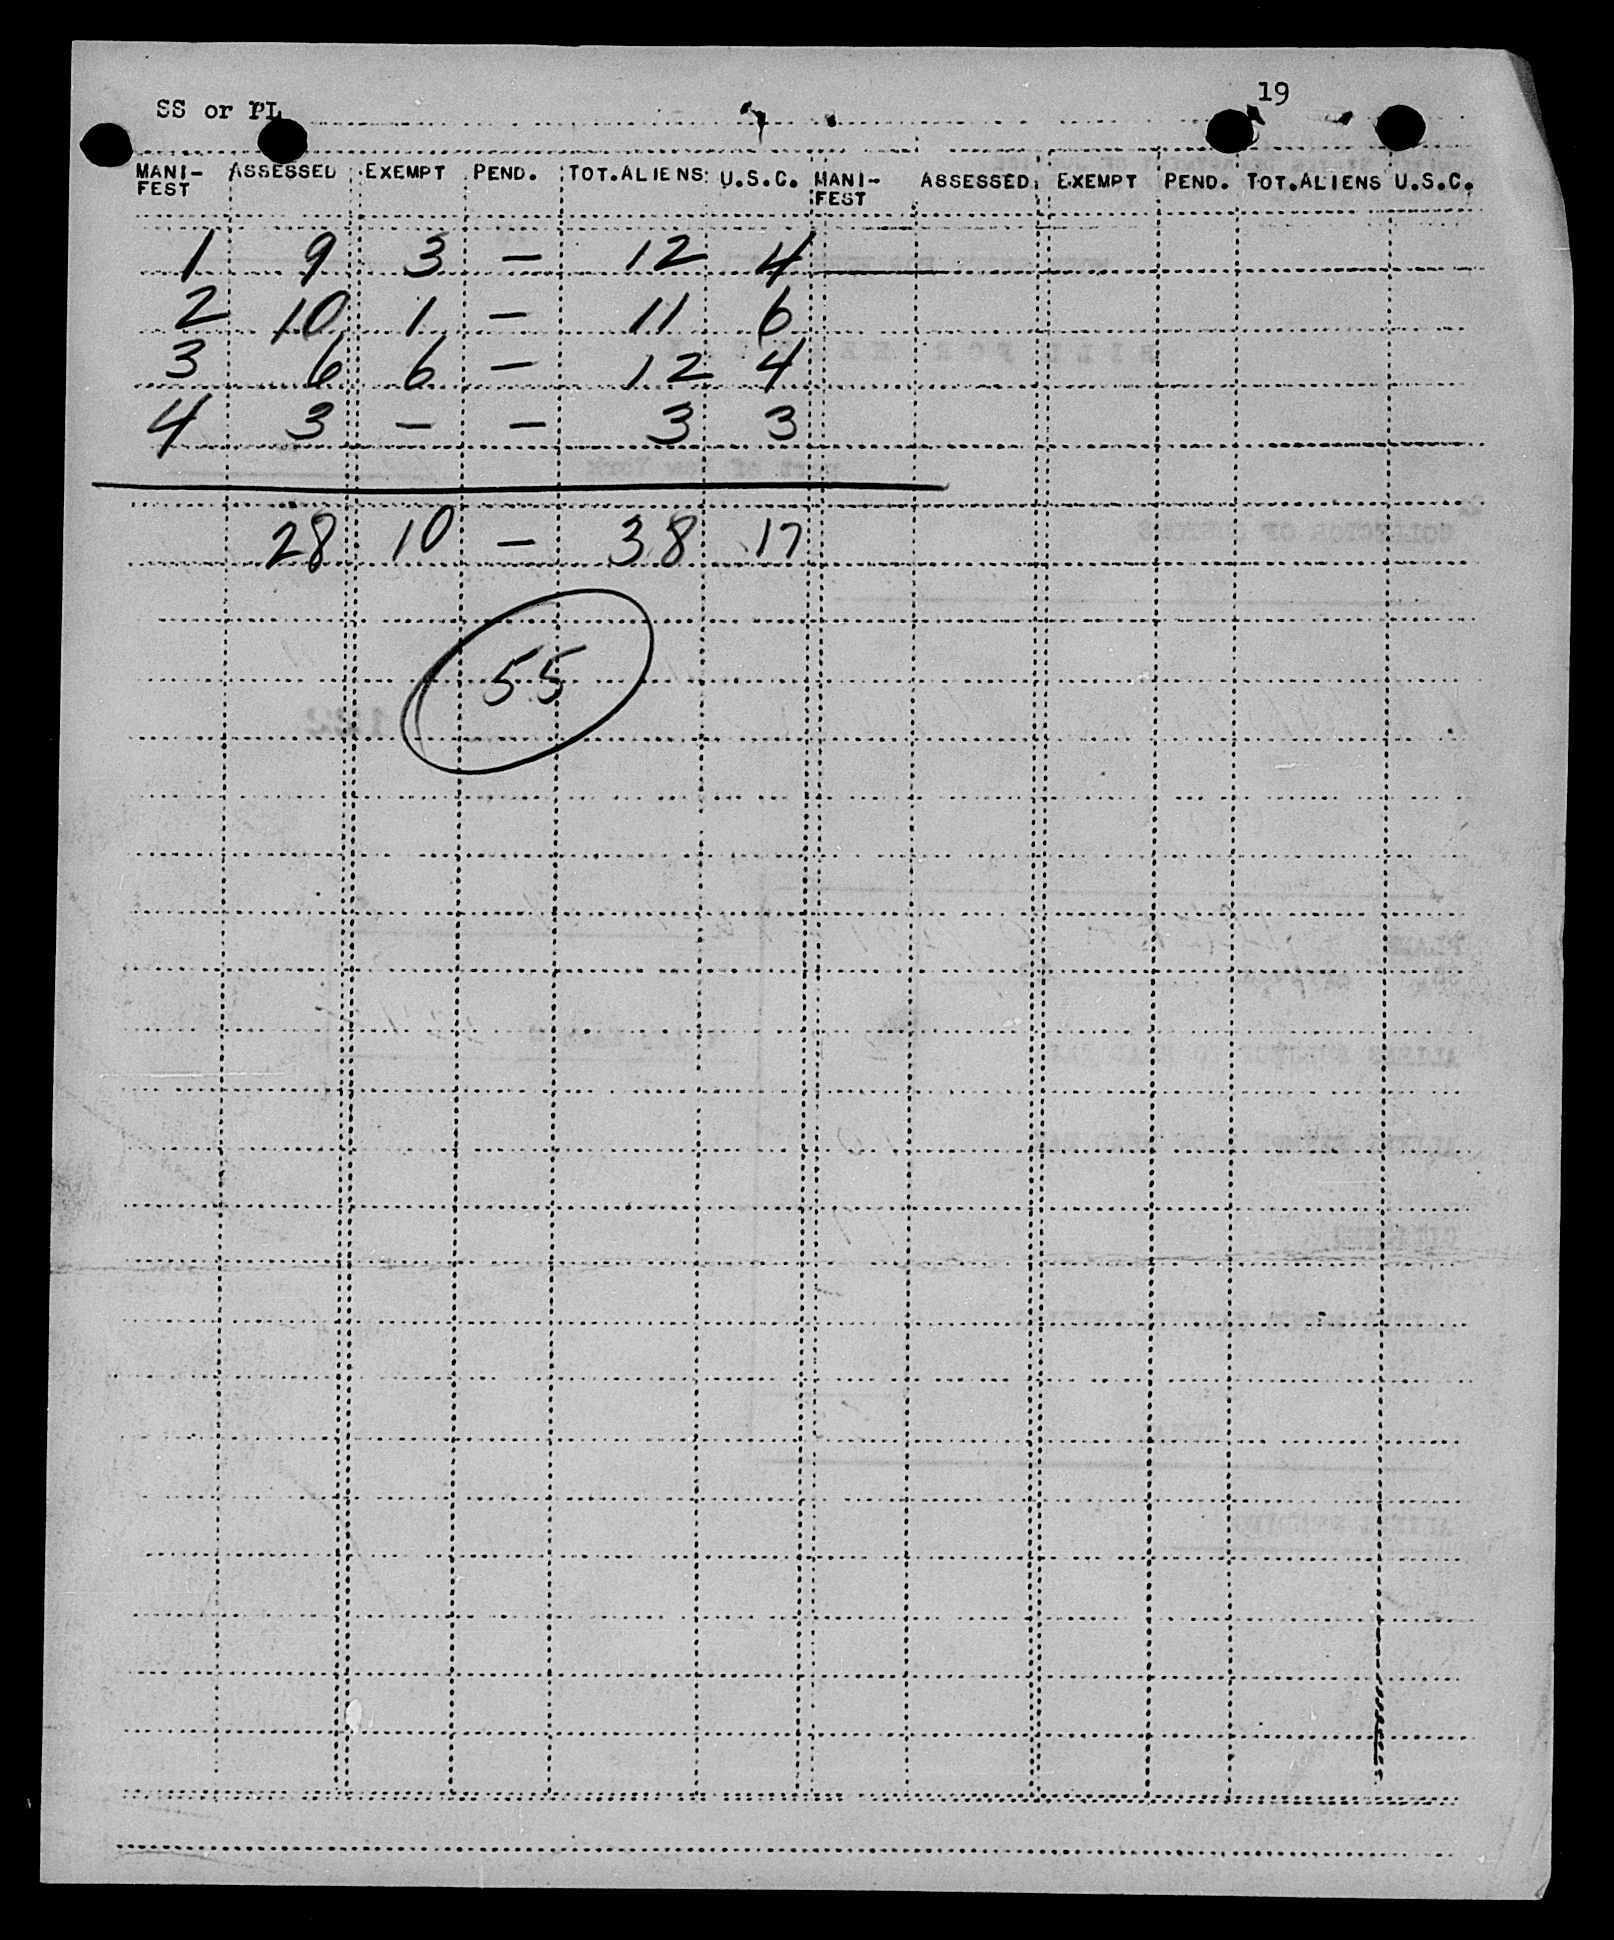 19
SS or PL
MANI-FEST ASSESSED EXEMPT PEND. TOT.ALIENS U.S.C. MANI-FEST ASSESSED EXEMPT PEND. TOT.ALIENS U.S.C.
1 9 3 - 12 4
2 10 1 - 11 6
3 6 6 - 12 4
4 3 - - 3 3
28 10 - 38 17
55